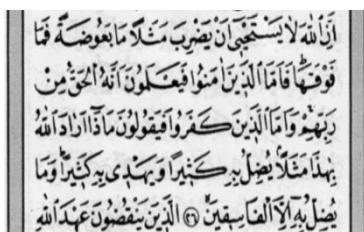 اِنَّ اللّٰهَ لَا يَسْتَحْيٖٓ اَنْ يَضْرِبَ مَثَلًا مَا بَعُوضَةً فَمَا
فَوْقَهَاۜ فَاَمَّا الَّذٖينَ اٰمَنُوا فَيَعْلَمُونَ اَنَّهُ الْحَقُّ مِنْ
رَبِّهِمْۚ وَاَمَّا الَّذٖينَ كَفَرُوا فَيَقُولُونَ مَاذَٓا اَرَادَ اللّٰهُ
بِهٰذَا مَثَلًاۢ يُضِلُّ بِهٖ كَثٖيرًا وَيَهْدٖى بِهٖ كَثٖيرًاۜ وَمَا
يُضِلُّ بِهٖٓ اِلَّا الْفَاسِقٖينَۙ ﴿٢٦﴾ اَلَّذٖينَ يَنْقُضُونَ عَهْدَ اللّٰهِ